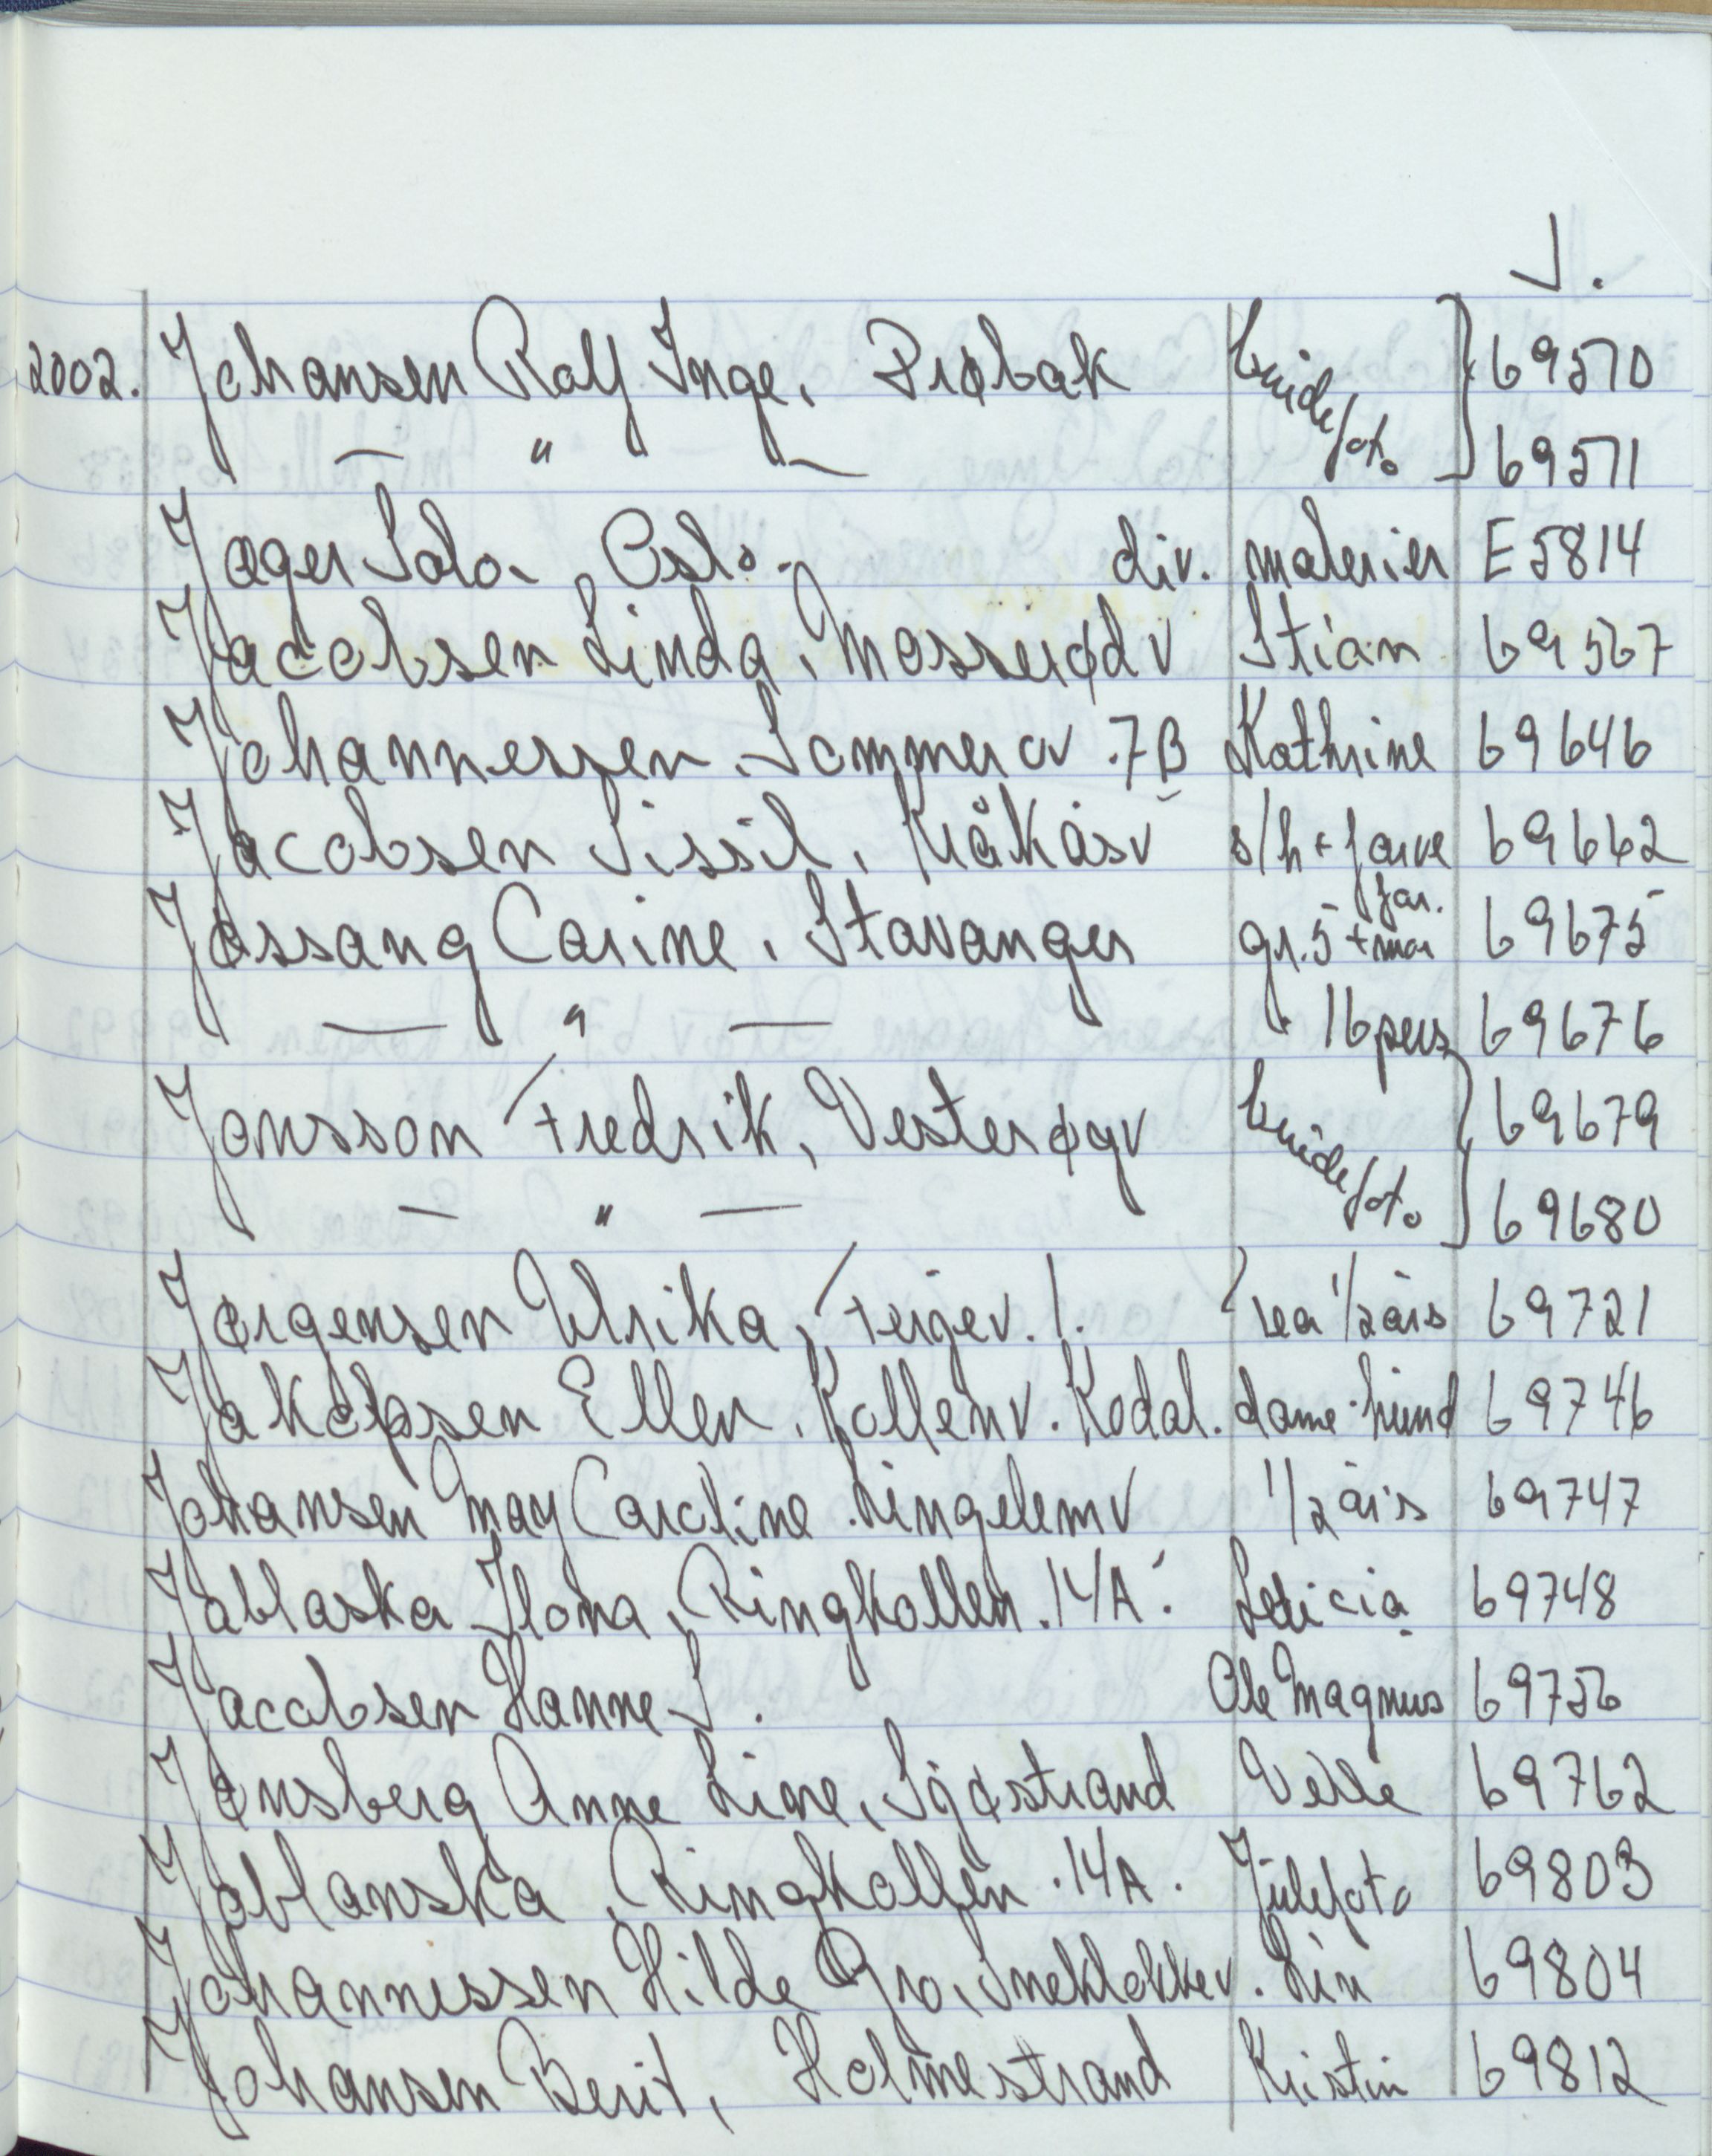 J.
2002. Johansen Rolf Inge, Drøbak brudefoto 69570
— " — 69571
Jager Solo, Oslo. div. malerier E5814
Jacobsen Linda, Mosserødv Stian 69567
Johannessen, Sommer 7B Kathrine 69646
Jacobsen Sissil, Kråkåsv s/h + farve 69662
Jøssang Carine, Stavanger gr. 5 + mor far. 69675
— " — " 16 pers 69676
Jonsson Fredrik, Vesterøyv brudefoto 69679
— " — 69680
Jørgensen Ulrika, Terjev. 1. Lea 1/2 års 69721
Jakobsen Ellen, Kollenv. Kodal. dame · hund 69746
Johansen May Caroline. Lingelemv 1/2 års 69747
Jablaska Ilona, Ringkollen. 14A. Leticia 69748
Jacobsen Hanne S. Ole Magnus 69756
Jønsberg Anne Line, Sjøstrand Velle 69762
Joblanska, Ringkollen. 14A. Julefoto 69803
Johannessen Hilde Gro, Sneklokkev. Lin 69804
Johansen Berit, Holmestrand Kristin 69812